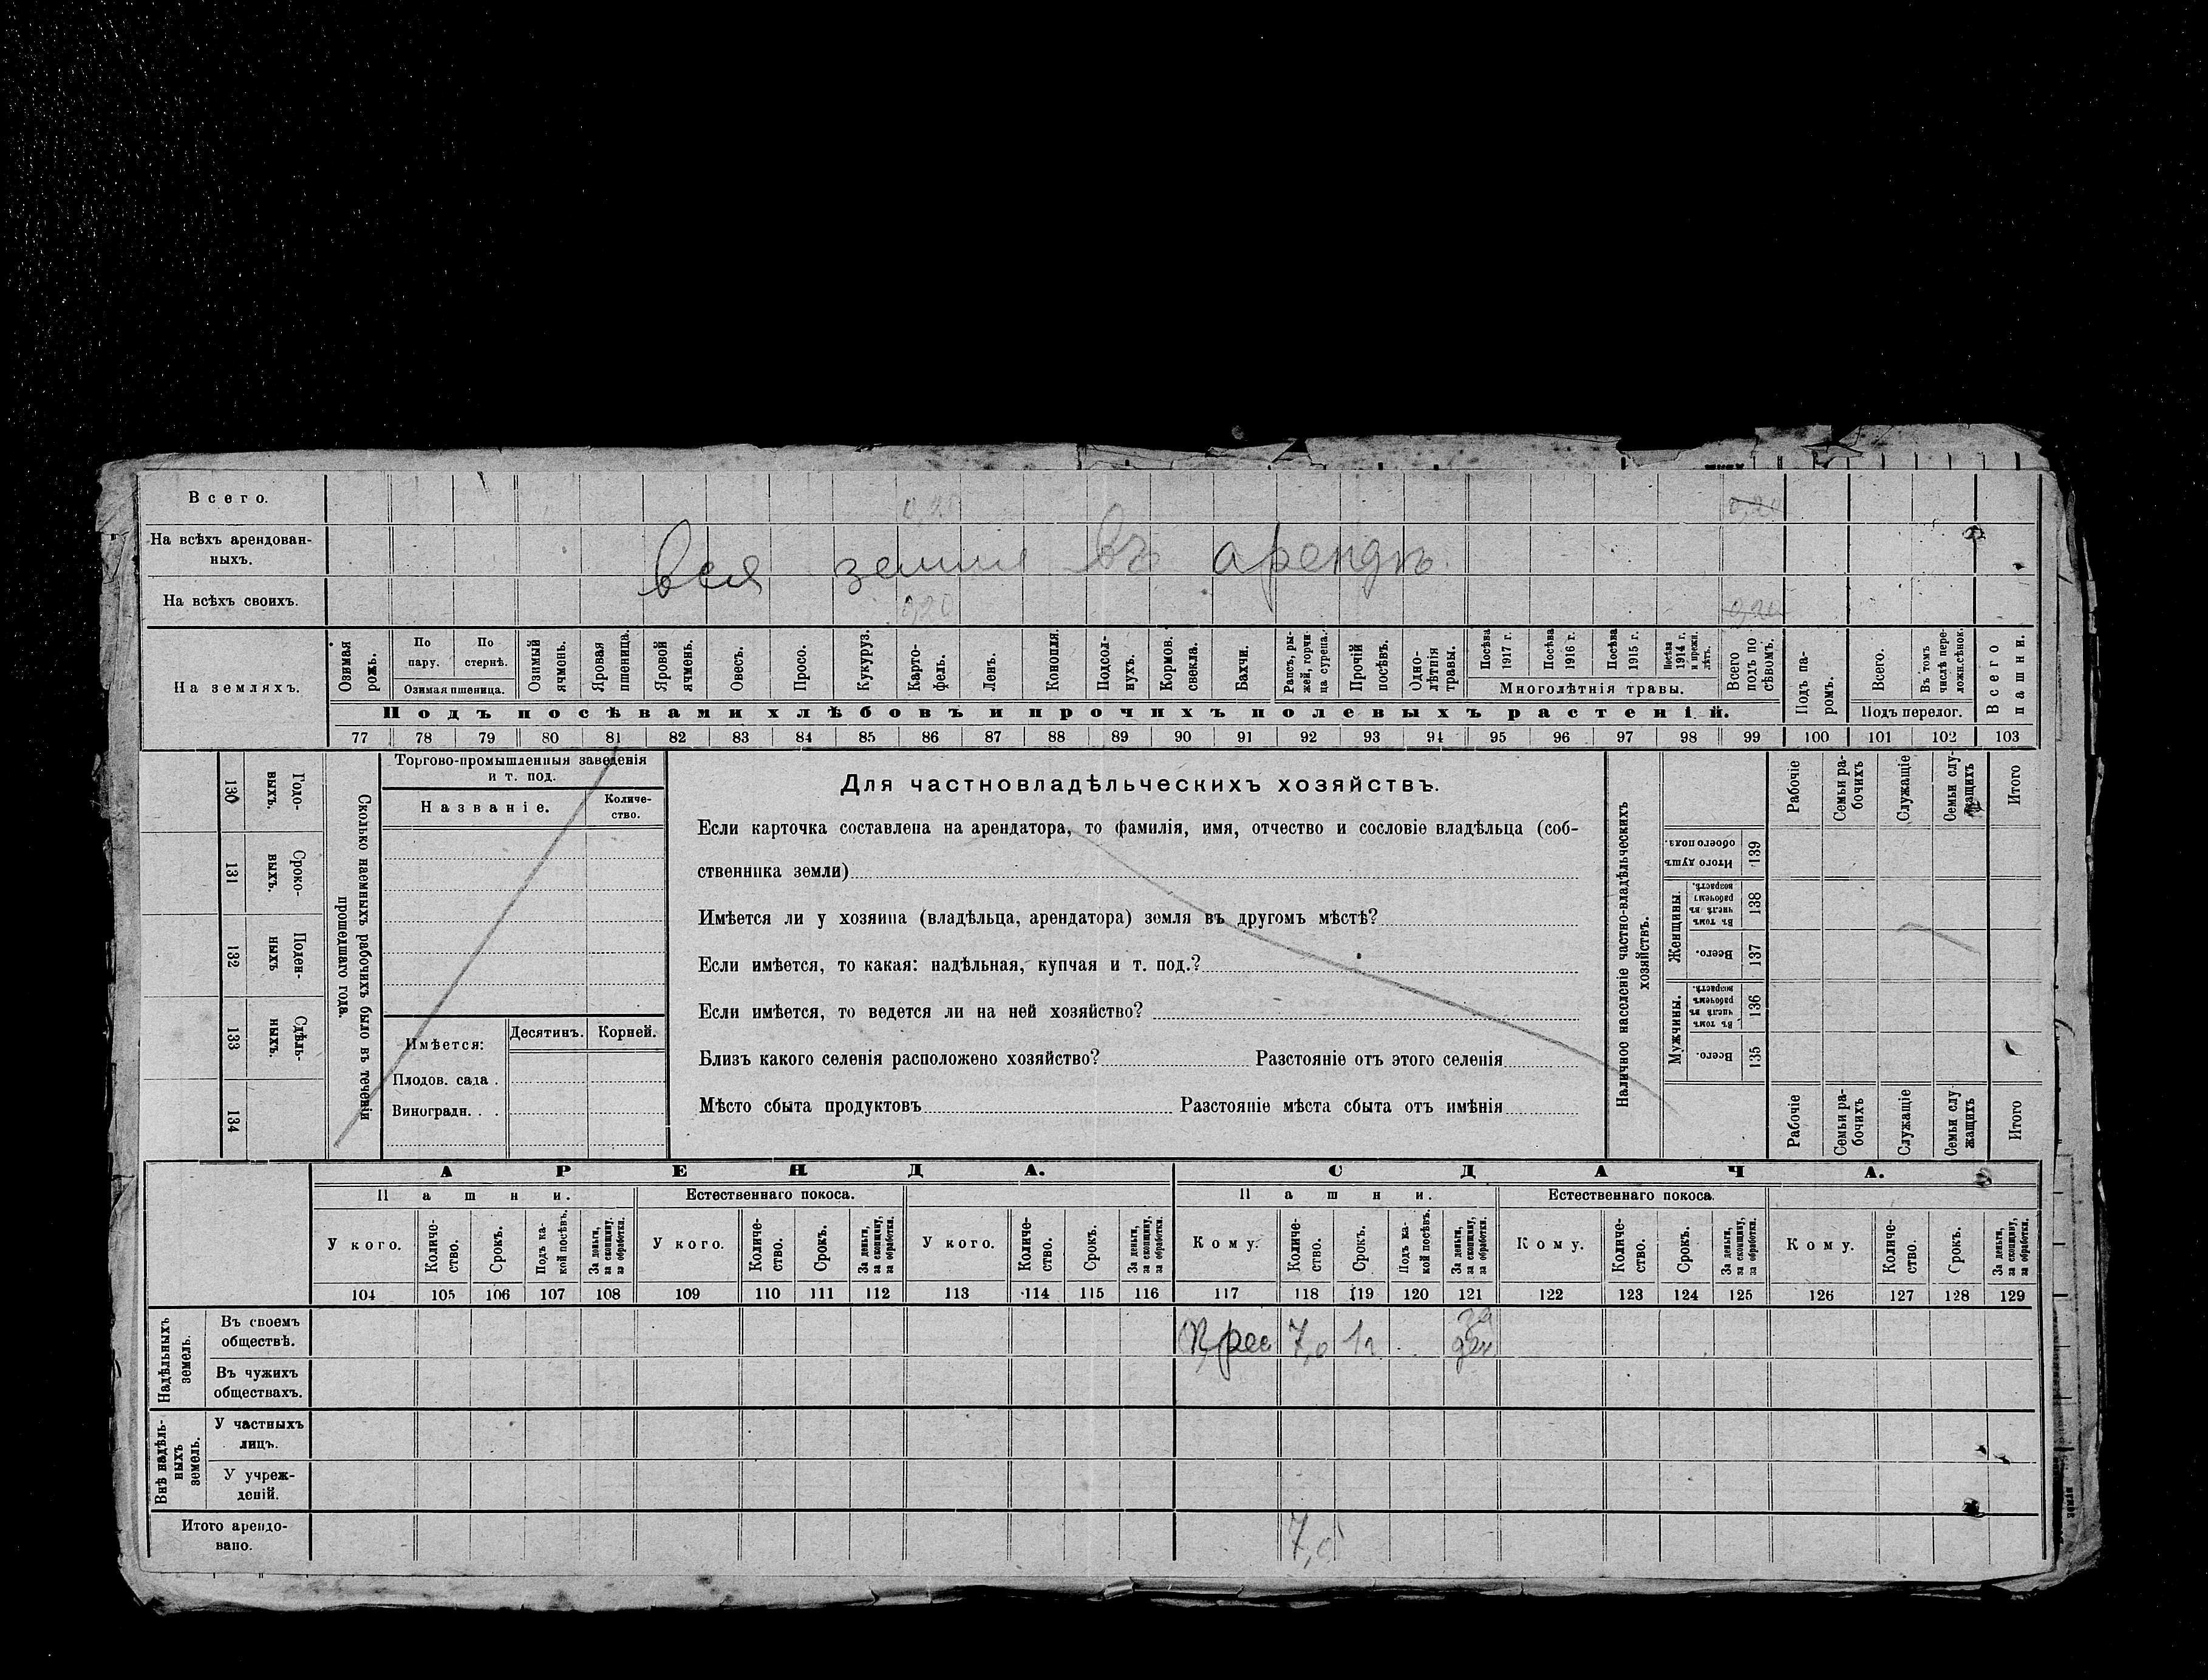 Всего. 0,20 0,20
На всѣхъ арендован-
ныхъ.
вся земля въ арендѣ
На всѣхъ своихъ. 0,20 0,20
На земляхъ.
Озимая
рожь.
По
пару.
По
стернѣ.
Озимая пшеница.
Озимый
ячмень.
Яровая
пшеница.
Яровой
ячмень.
Овесъ.
Просо.
Кукуруз.
Карто-
фель.
Ленъ.
Конопля.
Подсол-
нухъ.
Кормов.
свекла.
Бахчи.
Рапсъ, ры-
жей, горчи-
ца сурепа.
Прочій
посѣвъ.
Одно-
лѣтнія
травы.
Посѣва
1917 г.
Посѣва
1916 г.
Посѣва
1915 г.
Посѣва
1914 г.
и прежн.
лѣтъ.
Многолѣтнія травы.
Всего
подъ по
сѣвомъ.
Подъ па-
ромъ.
Всего.
Въ томъ
числѣ пере-
ложн.сѣнок.
Подъ перелог.
Всего
пашни.
Подъ посѣвами хлѣбовъ и прочихъ полевыхъ растеній.
77 78 79 80 81 82 83 84 85 86 87 88 89 90 91 92 93 94 95 96 97 98 99 100 101 102 103
130
Годо-
выхъ.
131
Сроко-
выхъ.
132
Поден-
ныхъ
133
Сдѣль-
ныхъ.
134
Сколько наемныхъ рабочихъ было въ теченіи
прошедшаго года.
Торгово-промышленныя заведенія
и т. под.
Названіе.
Количе-
ство.
Имѣется:
Десятинъ. Корней.
Плодов. сада .
Виноградн. . .
Для частновладѣльческихъ хозяйствъ.
Если карточка составлена на арендатора, то фамилія, имя, отчество и сословіе владѣльца (соб-
ственника земли)
Имѣется ли у хозяина (владѣльца, арендатора) земля въ другомъ мѣстѣ?
Если имѣется, то какая: надѣльная, купчая и т. под.?
Если имѣется, то ведется ли на ней хозяйство?
Близъ какого селенія расположено хозяйство? Разстояніе отъ этого селенія
Мѣсто сбыта продуктовъ Разстояніе мѣста сбыта отъ имѣнія
Наличное населеніе частно-владѣльческихъ
хозяйствъ.
Рабочіе
Семьи ра-
бочихъ
Служащіе
Семьи слу-
жащихъ
Итого
Итого душъ
обоего пола.
139
Женщины
Въ томъ
числѣ въ
рабочемъ
возрастѣ.
138
Всего.
137
Мужчины.
Въ томъ
числѣ въ
рабочемъ
возрастѣ.
136
Всего.
135
Рабочіе
Семьи ра-
бочихъ
Служащіе
Семьи слу-
жащихъ
Итого
АРЕНДА. СДАЧА.
Пашни. Естественнаго покоса. Пашни. Естественнаго покоса.
У кого.
Количе-
ство.
Срокъ.
Подъ ка-
кой посѣвъ.
За деньги,
за скопщину,
за обработки.
У кого.
Количе-
ство.
Срокъ.
За деньги,
за скопщину,
за обработки.
У кого.
Количе-
ство.
Срокъ.
За деньги,
за скопщину,
за обработки.
Кому.
Количе-
ство.
Срокъ.
Подъ ка-
кой посѣвъ.
За деньги,
за скопщину,
за обработки.
Кому.
Количе-
ство.
Срокъ.
За деньги,
за скопщину,
за обработки.
Кому.
Количе-
ство.
Срокъ.
За деньги,
за скопщину,
за обработки.
104 105 106 107 108 109 110 111 112 113 114 115 116 117 118 119 120 121 122 123 124 125 126 127 128 129
Надѣльныхъ
земель.
Въ своемъ
обществѣ.
7,0 1г за
ден
Въ чужихъ
обществахъ.
Внѣ надѣль-
ныхъ
земель.
У частныхъ
лицъ.
У учреж-
деній.
Итого арендо-
вано.
7,0